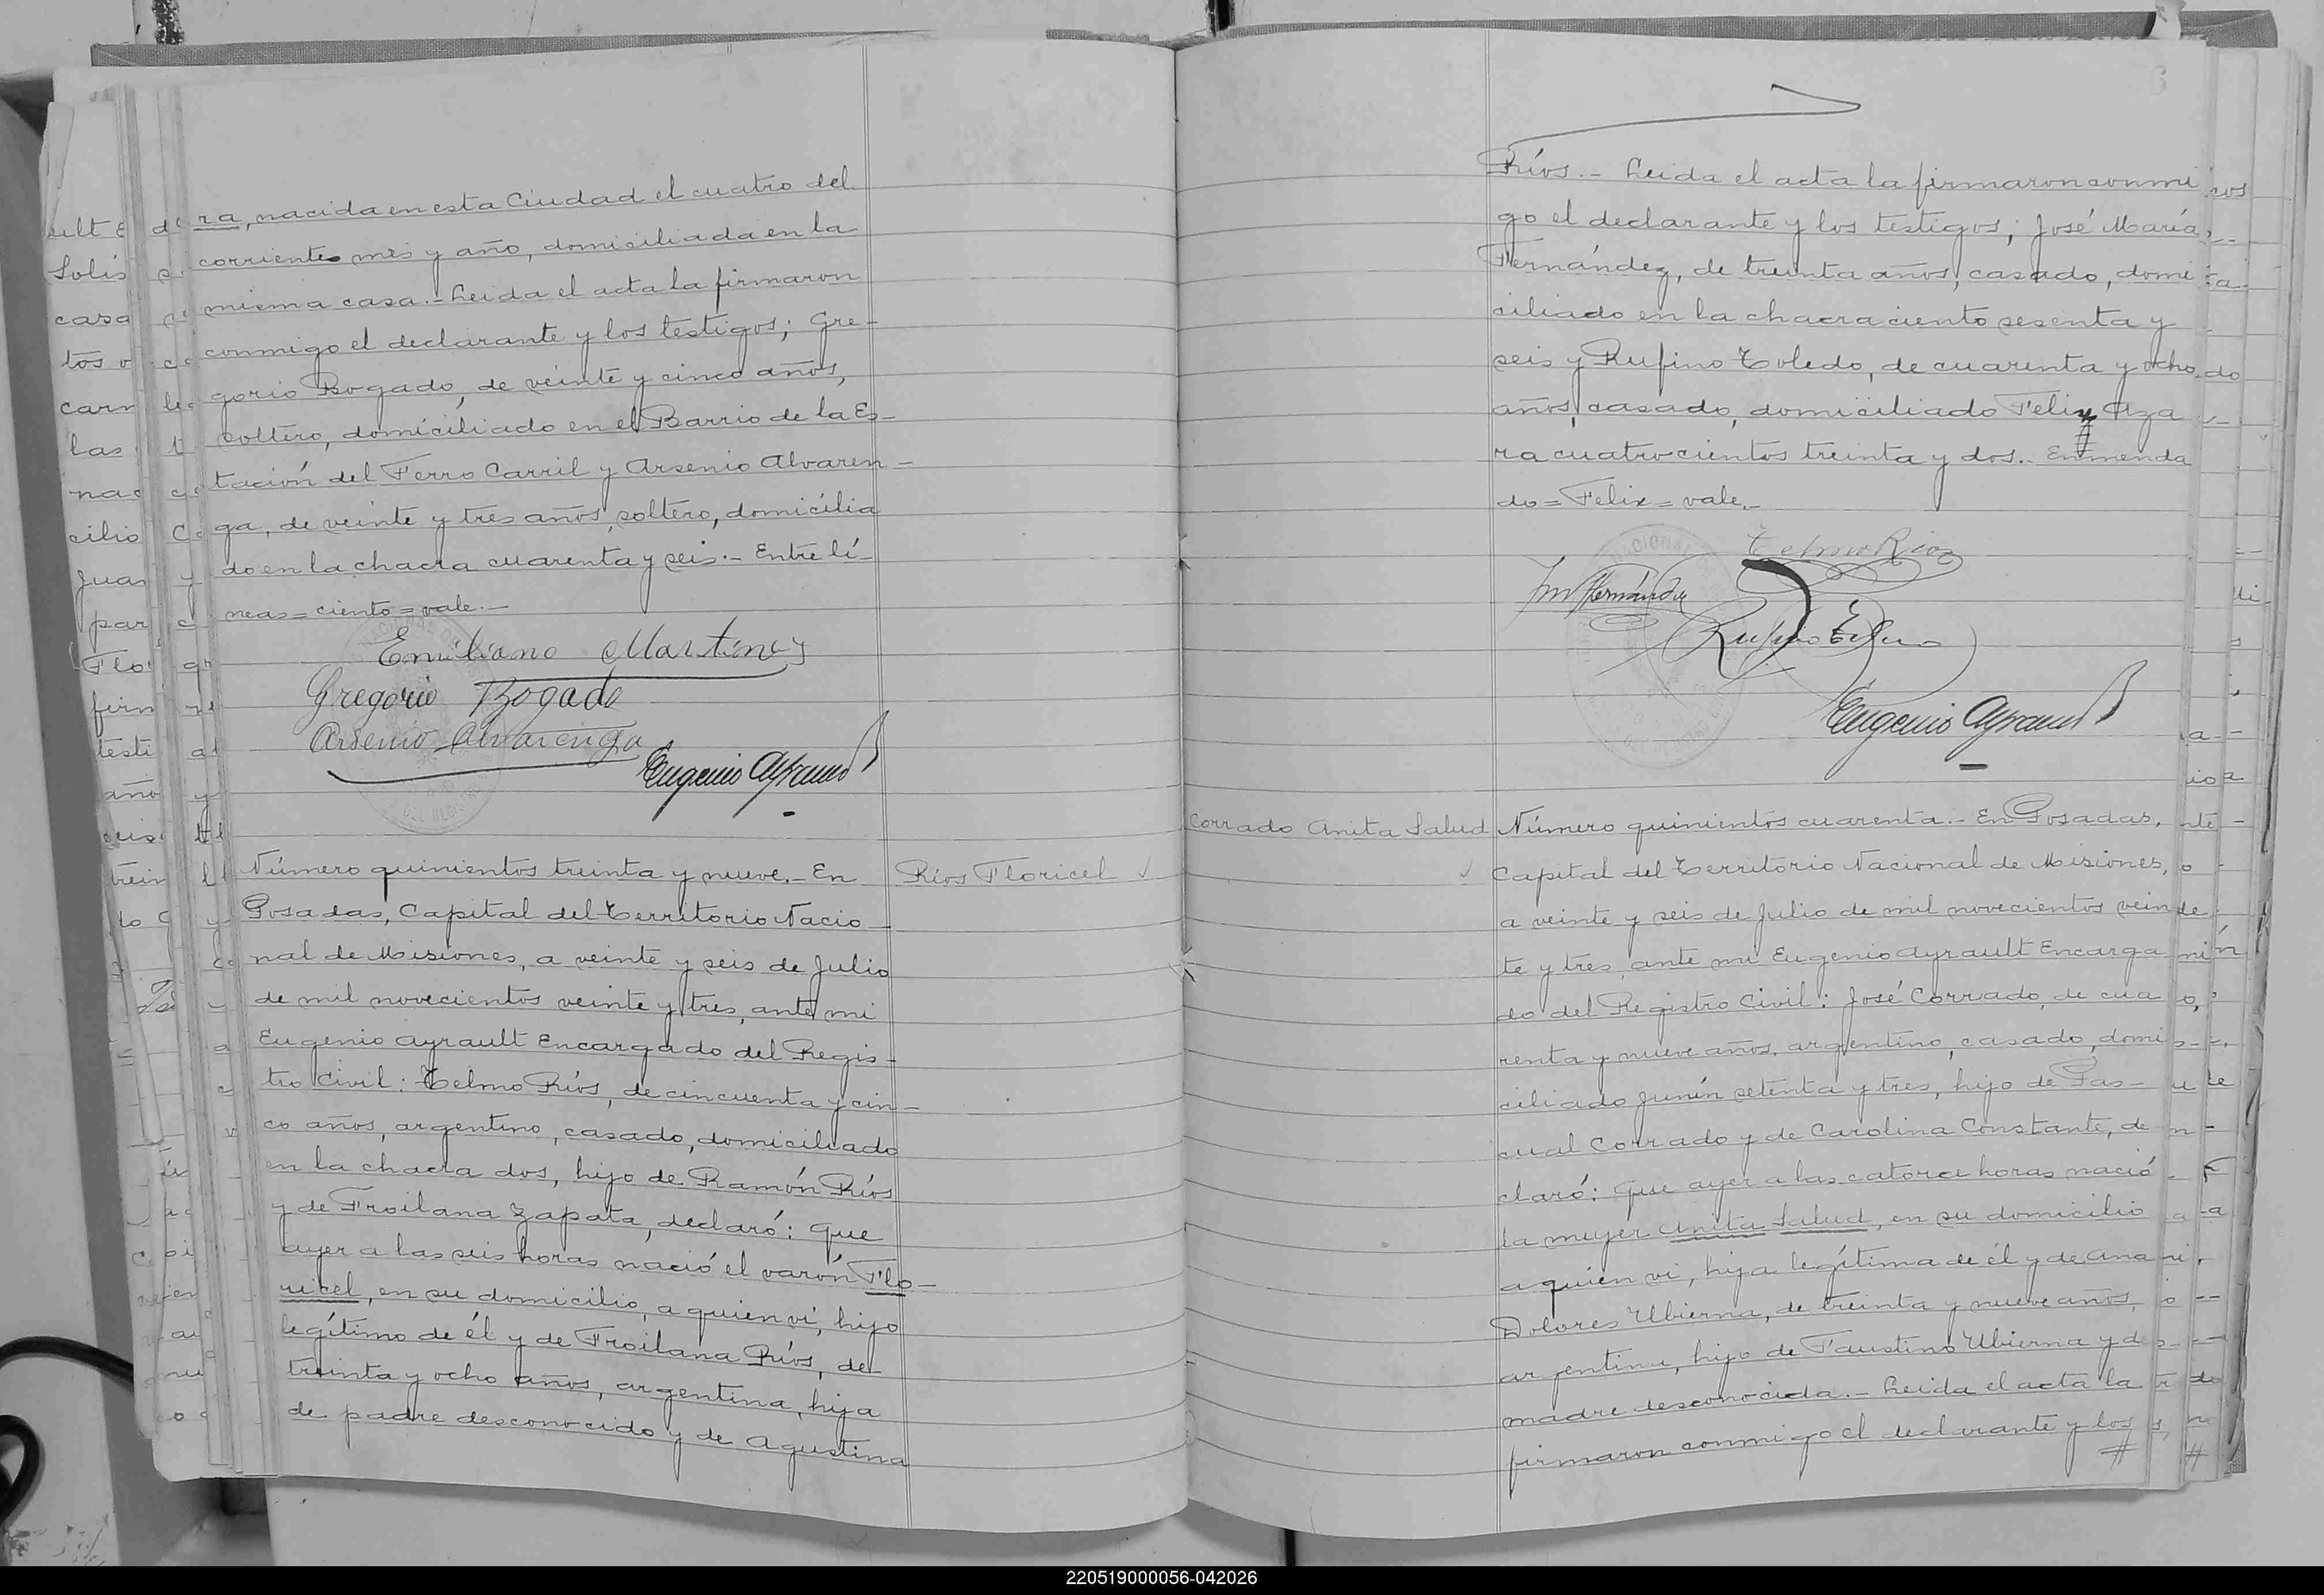 ra, nacida en esta Ciudad el cuatro del
corriente mes y año, domiciliada en la
misma casa.- Leida el acta la firmaron
conmigo el declarante y los testigos; Gre-
gorio Bogado, de veinte y cinco años,
soltero, domiciliado en el Barrio de la Es-
tación del Ferro Carril y Arsenio Alvaren-
ga, de veinte y tres años, soltero, domicilia
do en la chacra cuarenta y seis.- Entre lí-
neas = ciento = vale.-
Emiliano Martinez
Gregorio Bogado
Arsenio Alvarenga
Eugenio Ayrault
Número quinientos treinta y nueve.- En
Ríos Floricel
Posadas, Capital del Territorio Nacio
nal de Misiones, a veinte y seis de Julio
de mil novecientos veinte y tres, ante mi
Eugenio Ayrault Encargado del Regis-
tro Civil: Telmo Ríos, de cincuenta y cin-
co años, argentino, casado, domiciliado
en la chacra dos, hijo de Ramón Ríos
y de Froilana Zapata, declaró: Que
ayer a las seis horas nació el varón Flo-
ricel, en su domicilio, a quien vi, hijo
legítimo de él y de Froilana Ríos, de
treinta y ocho años, argentina, hija
de padre desconocido y de Agustina
6
Ríos.- Leida el acta la firmaron conmi
go el declarante y los testigos; José María
Fernández, de treinta años, casado, domi
ciliado en la chacra ciento sesenta y
seis y Rufino Toledo, de cuarenta y ocho
años, casado, domiciliado Felix Aza
ra cuatrocientos treinta y dos.- Enmenda
do = Felix = vale.-
Telmo Rios
Jm Fernández
Rufino Toledo
Eugenio Ayrault
Corrado Anita Salud
Número quinientos cuarenta.- En Posadas,
Capital del Territorio Nacional de Misiones,
a veinte y seis de Julio de mil novecientos vein
te y tres, ante mi Eugenio Ayrault Encarga
do del Registro Civil: José Corrado, de cua
renta y nueve años, argentino, casado, domi
ciliado Junín setenta y tres, hijo de Pas-
cual Corrado y de Carolina Constante, de
claró: Que ayer a las catorce horas nació
la mujer Anita Salud, en su domicilio
a quien vi, hija legítima de él y de Ana
Dolores Ubierna, de treinta y nueve años,
argentina, hija de Faustino Ubierna y de
madre desconocida.- Leida el acta la
firmaron conmigo el declarante y los
220519000056-042026